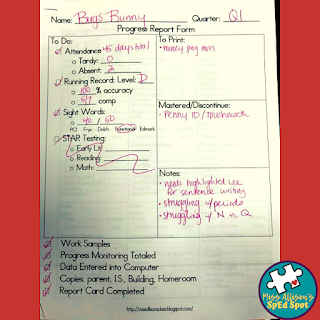 Name: Bugs Bunny Quarter: Q1
Progress Report Form
To Do:
Attendance 45 days total
Tardy: 0
Absent: 2
Running Record: Level: D
100 % accuracy
5/7 comp
Sight Words:
40 / 50
PCI Frye Dolch Functional Edmark
STAR Testing:
Early Lit:
Reading:
Math:
To Print:
• money pey mon
Mastered/Discontinue:
• Penny ID / touchmath
Notes:
• needs highlighted line
for sentence writing
• struggling w/periods
• struggling w/ N vs. Q
Work Samples
Progress Monitoring Totaled
Data Entered into Computer
Copies: parent, I.S., Building, Homeroom
Report Card Completed
Miss Allison's
SpEd Spot